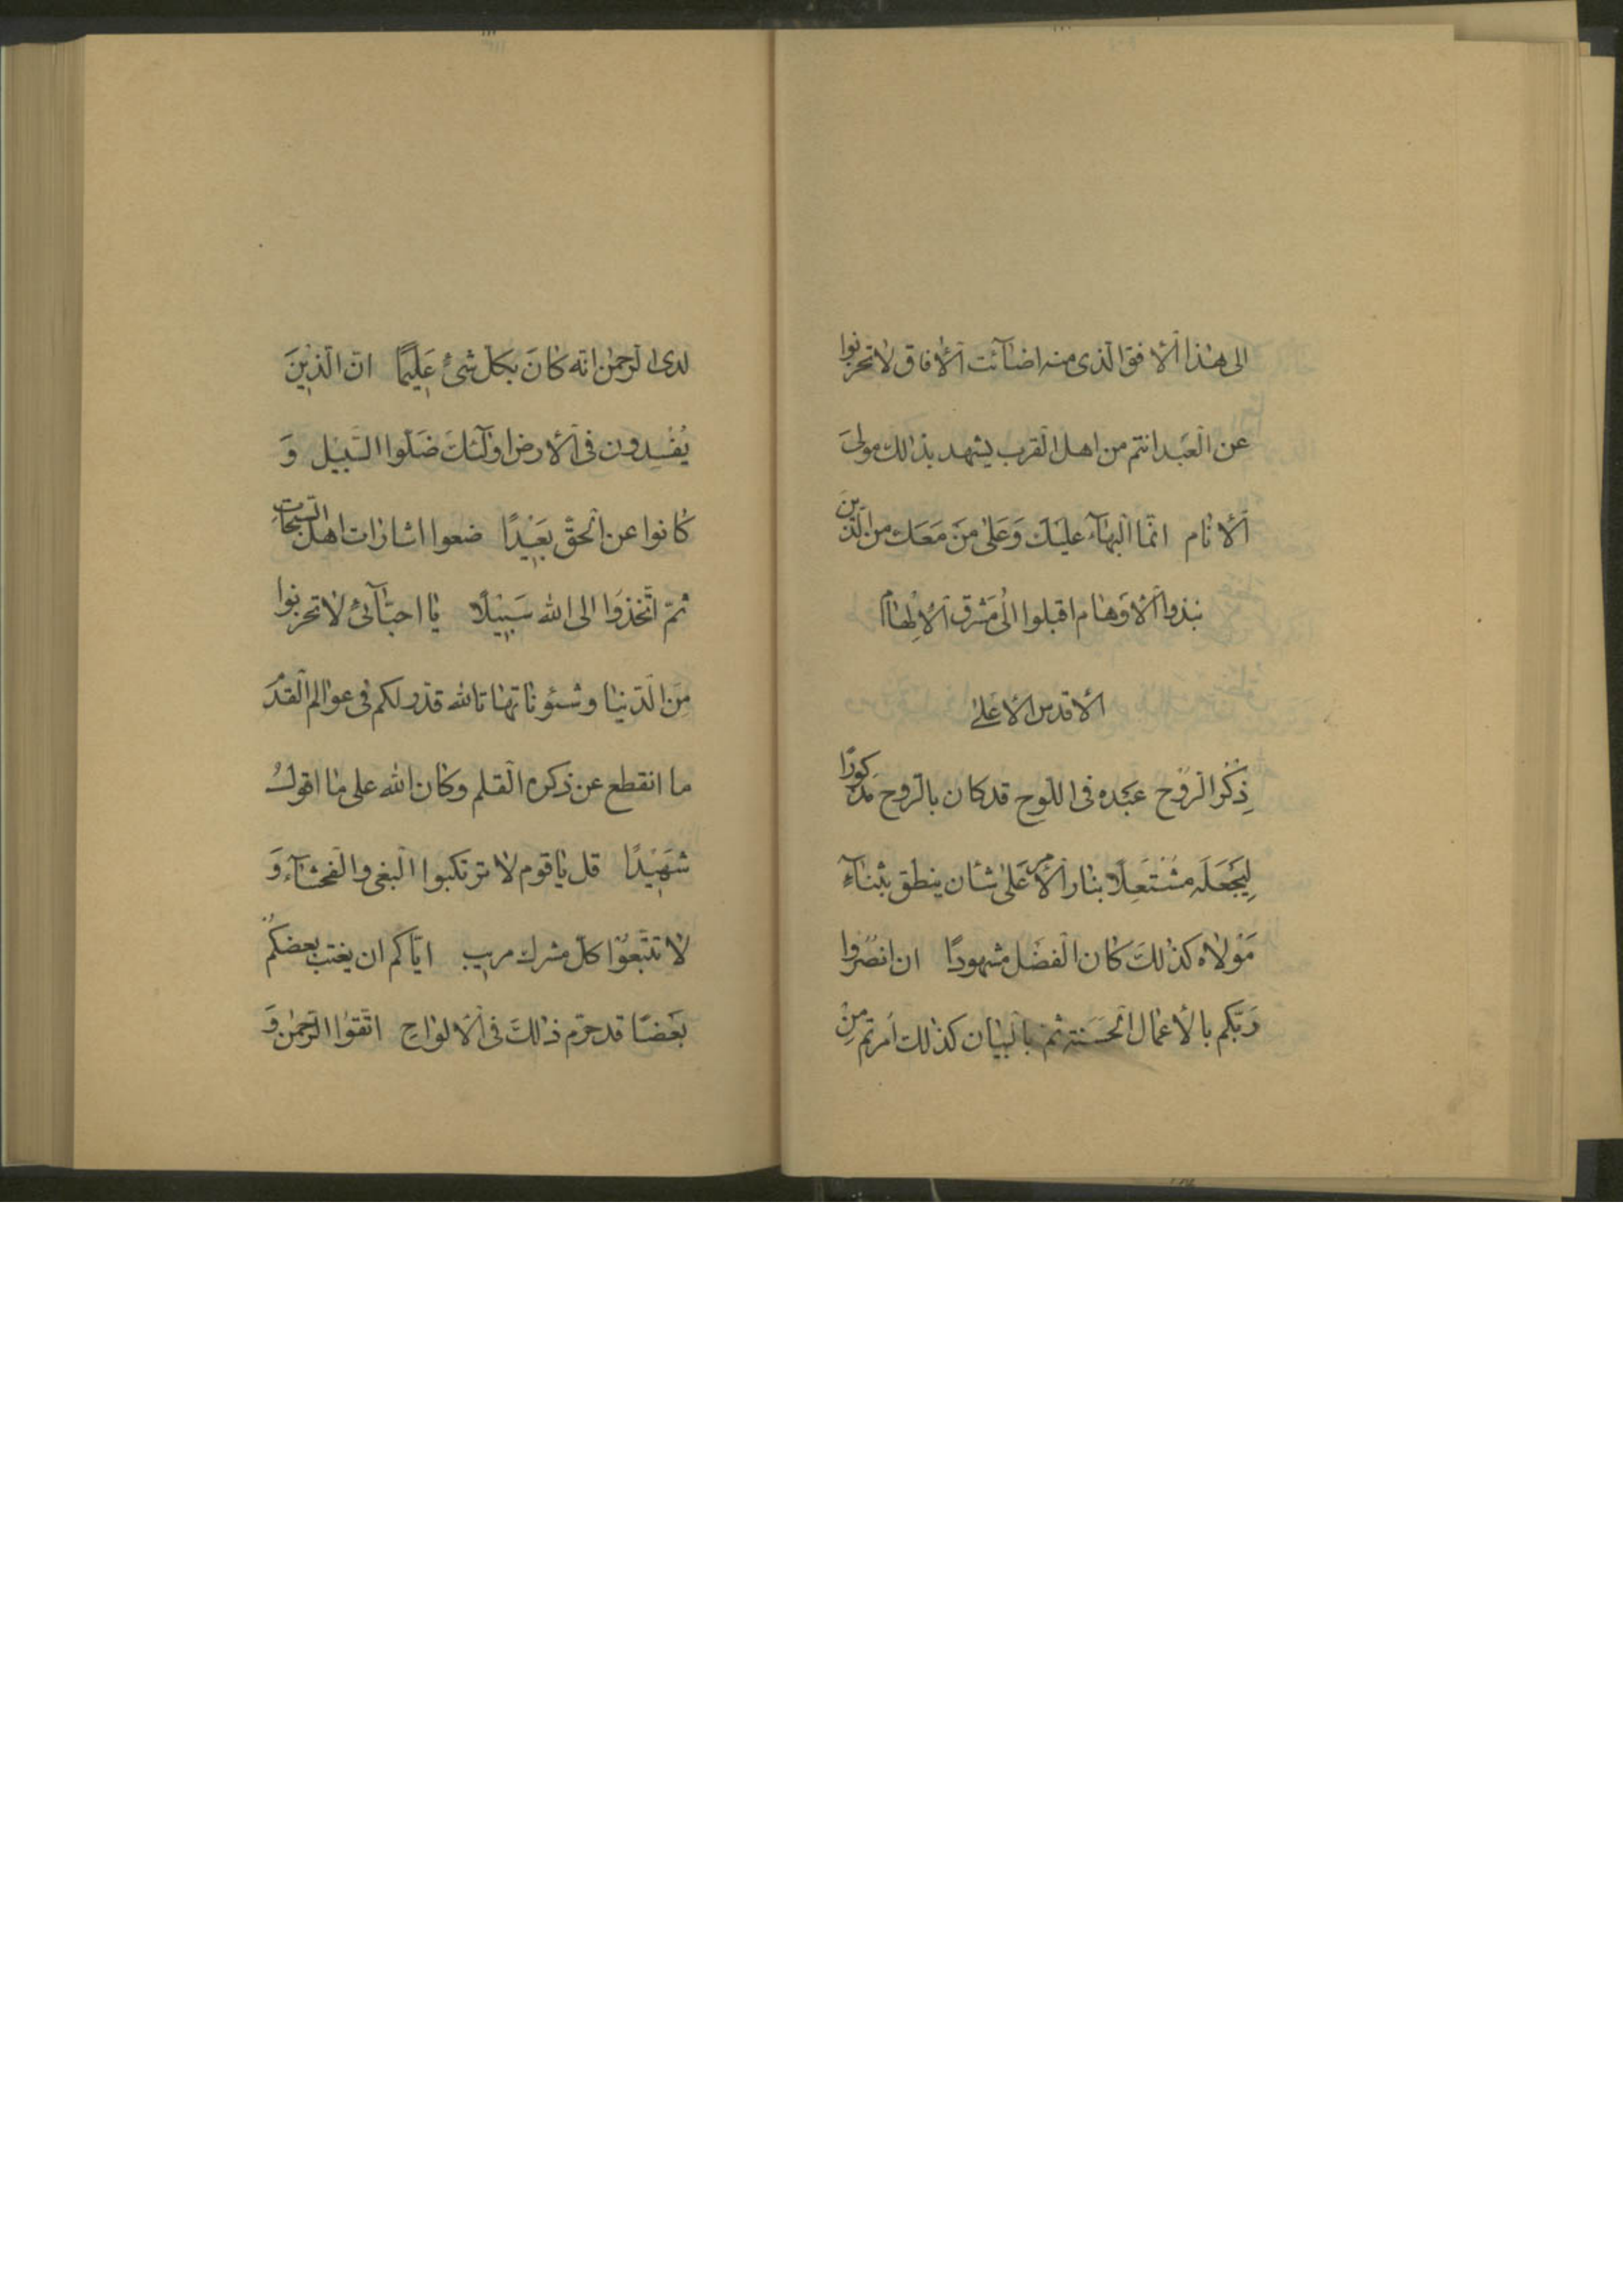 الی هٰذا الأفق الّذی منه اضآئت الأفاق لا تحزنوا
عن البعد انتم من اهل القرب یشهد بذالك مولیَ
الأنام انّما البهآء علیك وَعَلیٰ مَنْ مَعَك من الّذینَ
نبذوا الأوهٰام اقبلوا الیٰ مَشرق الألِهٰام
الأقدس الأعلیٰ
ذِكْر الرّوح عبَده فی اللوح قد كان بالرّوح مَذكورًا
لِیَجْعَلَه مشْتَعِلًا بنار الأمر عَلیٰ شأن ینطق بثنآءِ
مَوْلاه كذٰلكَ كٰان الفضْل مشهودًا ان انصُروا
رَبّكم بالأعمال الحَسَنة ثمّ بالبیٰان كذٰلك اُمرتم مِنْ
لدی الرّحمٰن انّه كٰانَ بكلّ شیْءٍ عَلِیمًا انّ الّذِینَ
یُفْسِدون فی الأرض اولٰئكَ ضَلّوا السّبیل وَ
كٰانوا عن الحقّ بَعِیْدًا ضعوا اشارٰات اهل السّبحاتِ
ثمّ اتّخذوَا الی الله سَبِیْلًا یٰا احبّآئی لا تحزنوا
مِنَ الدّنیٰا وشئوناتهٰا تالله قدّر لكم فی عوالم القدْسَ
ما انقطع عن ذكره القلم وكٰان الله علی مٰا اقولُ
شهِیْدًا قل یٰا قوم لا ترتكبوا البغی والفحشآء وَ
لا تتّبعُوْا كلّ مشرك مریب ایّاكم ان یغتب بعضكُمْ
بعَضًا قد حرّم ذٰلكَ فی الألوٰاح اتّقوُا الرّحمٰن وَ